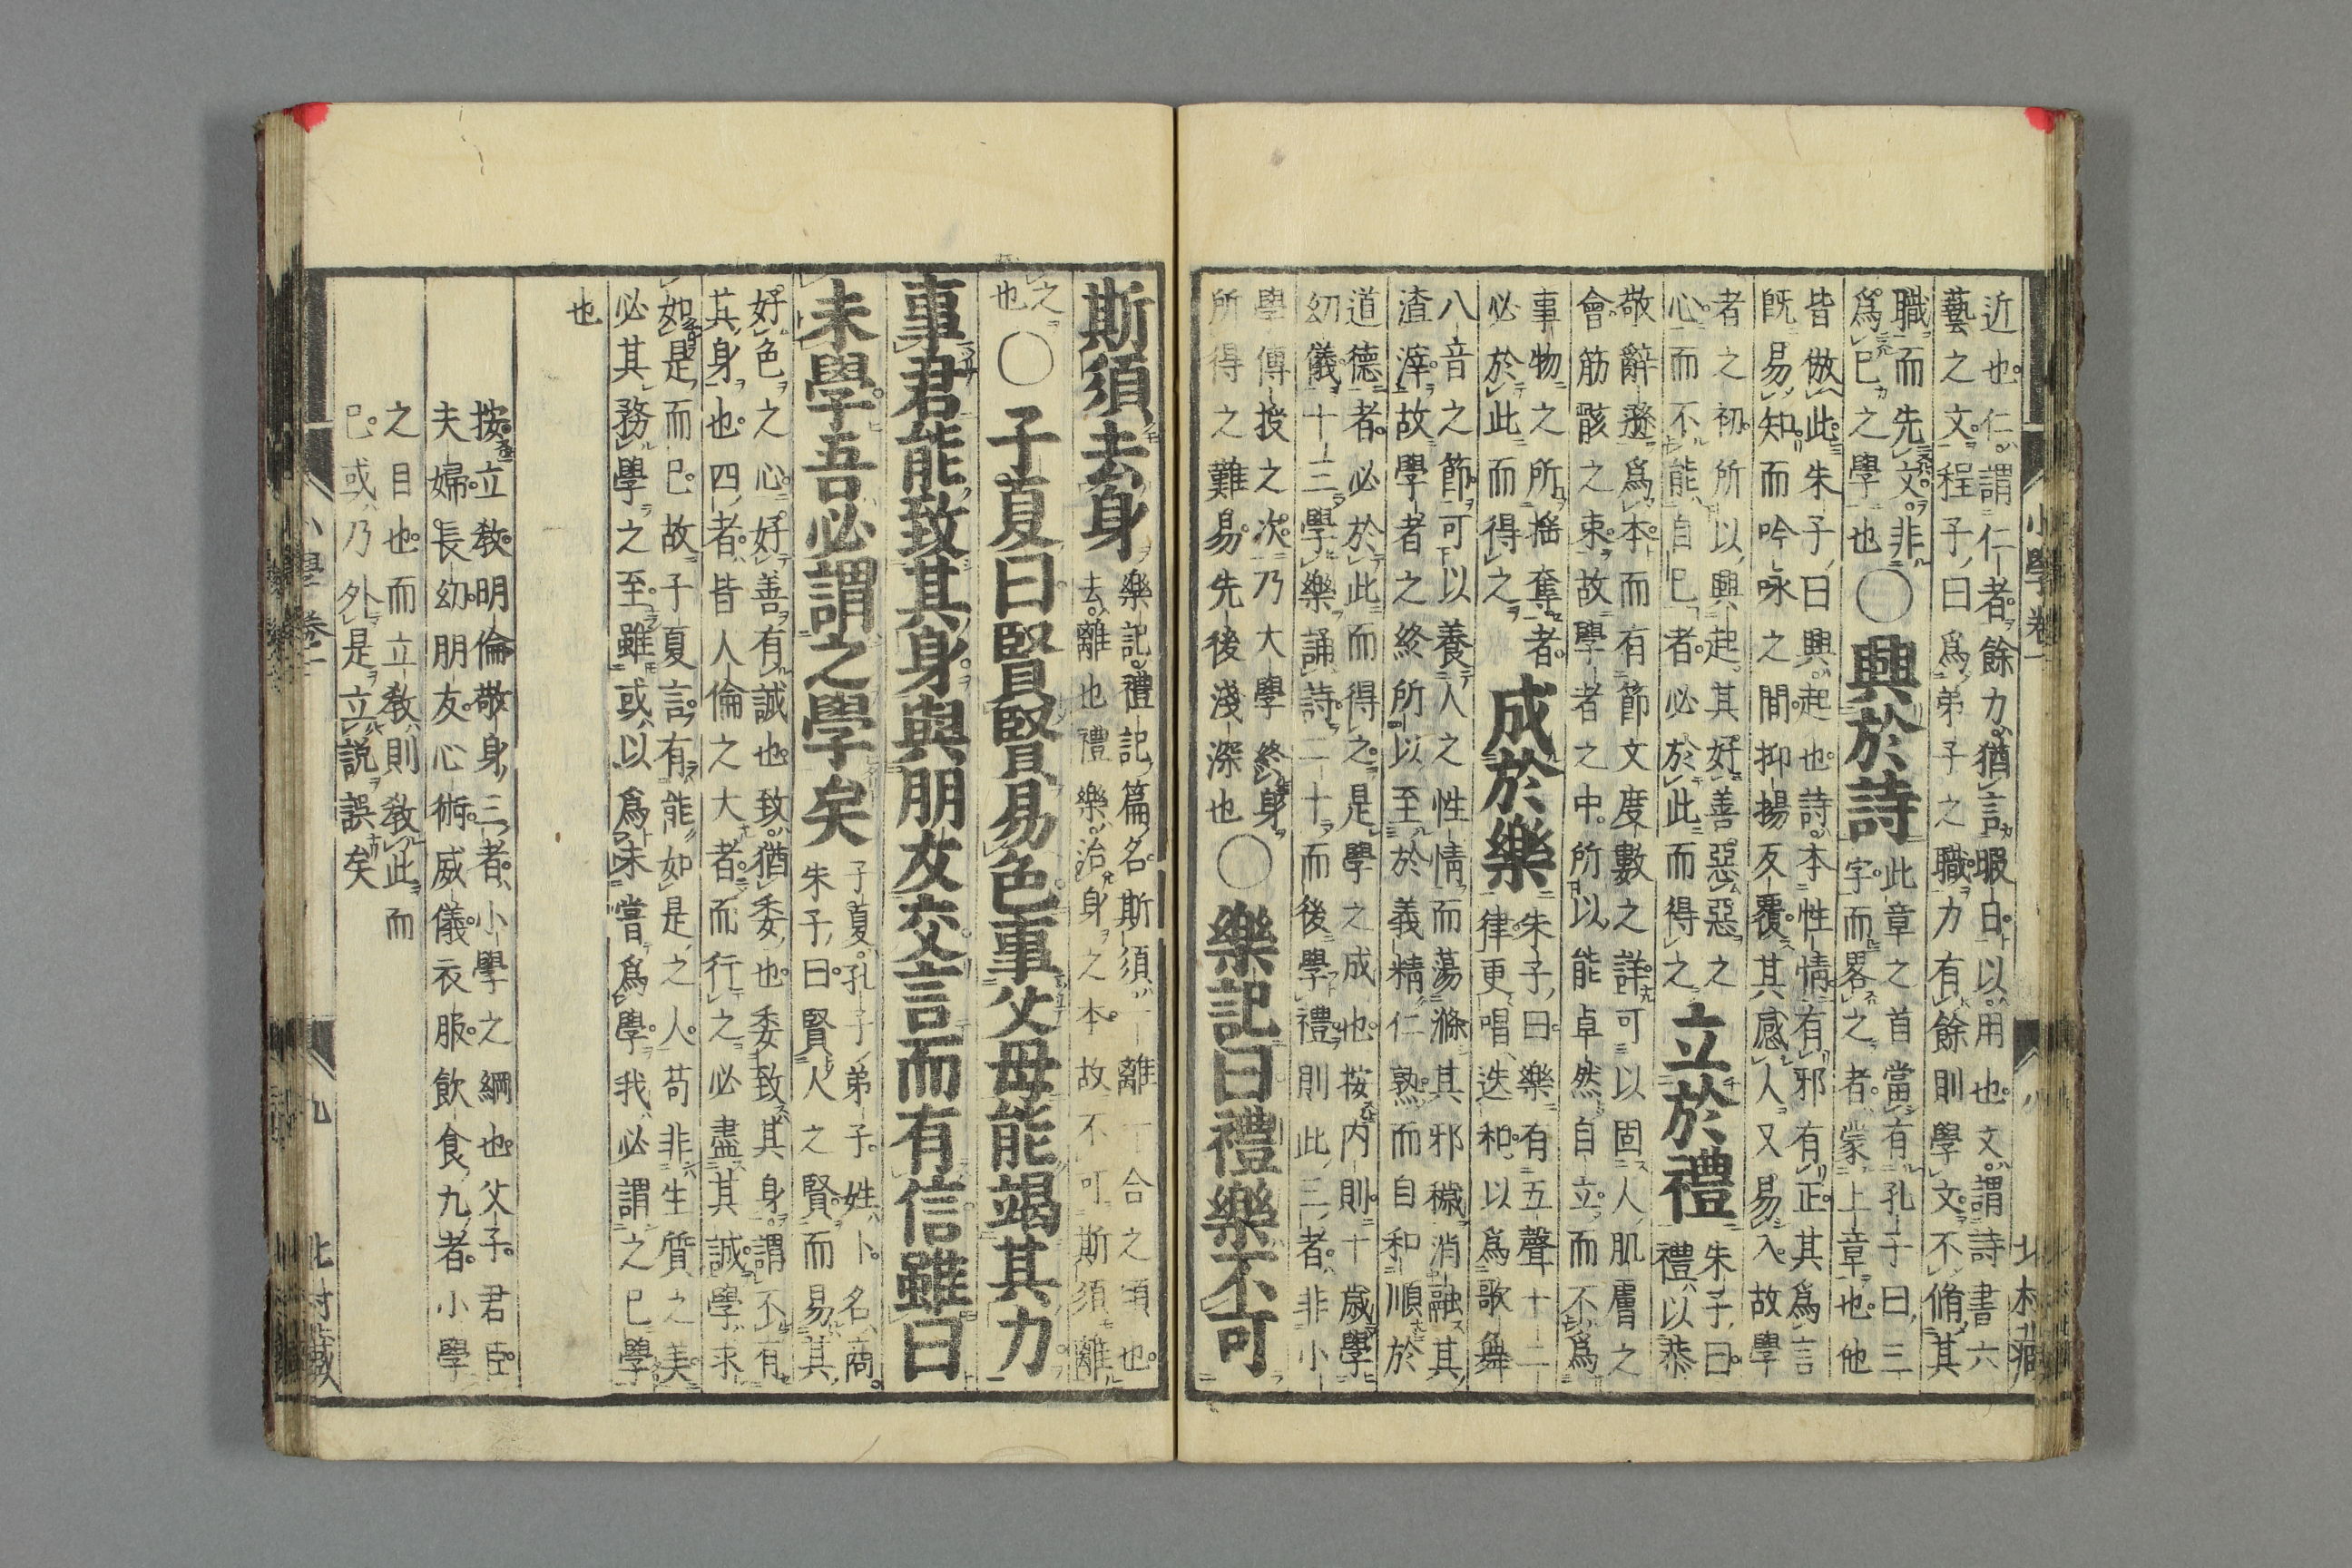 小學卷一
近也仁謂仁者餘力猶言暇日以用也文謂詩書六
藝之文程子曰爲弟子之職力有餘則學文不脩其
職而先文非
爲己之學也
○興於詩
此章之首當有孔子曰三
字而畧之者蒙上章也他
皆倣此朱子曰興起也詩本性情有邪有正其爲言
旣易知而吟咏之間抑揚反覆其感人又易入故學
者之初所以興起其好善惡惡之
心而不能自已者必於此而得之
立於禮
朱子曰
禮以恭
敬辭遜爲本而有節文度數之詳可以固人肌膚之
會筋骸之束故學者之中所以能卓然自立而不爲
事物之所搖奪者
必於此而得之
成於樂
朱子曰樂有五聲十二
律更唱迭和以爲歌舞
八音之節可以養人之性情而蕩滌其邪穢消融其
渣滓故學者之終所以至於義精仁熟而自和順於
道德者必於此而得之是學之成也按内則十歲學
幼儀十三學樂誦詩二十而後學禮則此三者非小
學傳授之次乃大學終身
所得之難易先後淺深也
○樂記曰禮樂不可
斯須去身
樂記禮記篇名斯須一離一合之頃也
去離也禮樂治身之本故不可斯須離
之
也
○子夏曰賢賢易色事父母能竭其力
事君能致其身與朋友交言而有信雖曰
未學吾必謂之學矣
子夏孔子弟子姓卜名商
朱子曰賢人之賢而易其
好色之心好善有誠也致猶委也委致其身謂不有
其身也四者皆人倫之大者而行之必盡其誠學求
如是而已故子夏言有能如是之人苟非生質之美
必其務學之至雖或以爲未嘗爲學我必謂之已學
也
按立敎明倫敬身三者小學之綱也父子君臣
夫婦長幼朋友心術威儀衣服飮食九者小學
之目也而立敎則敎此而
已或乃外是立説誤矣
小學卷一
九